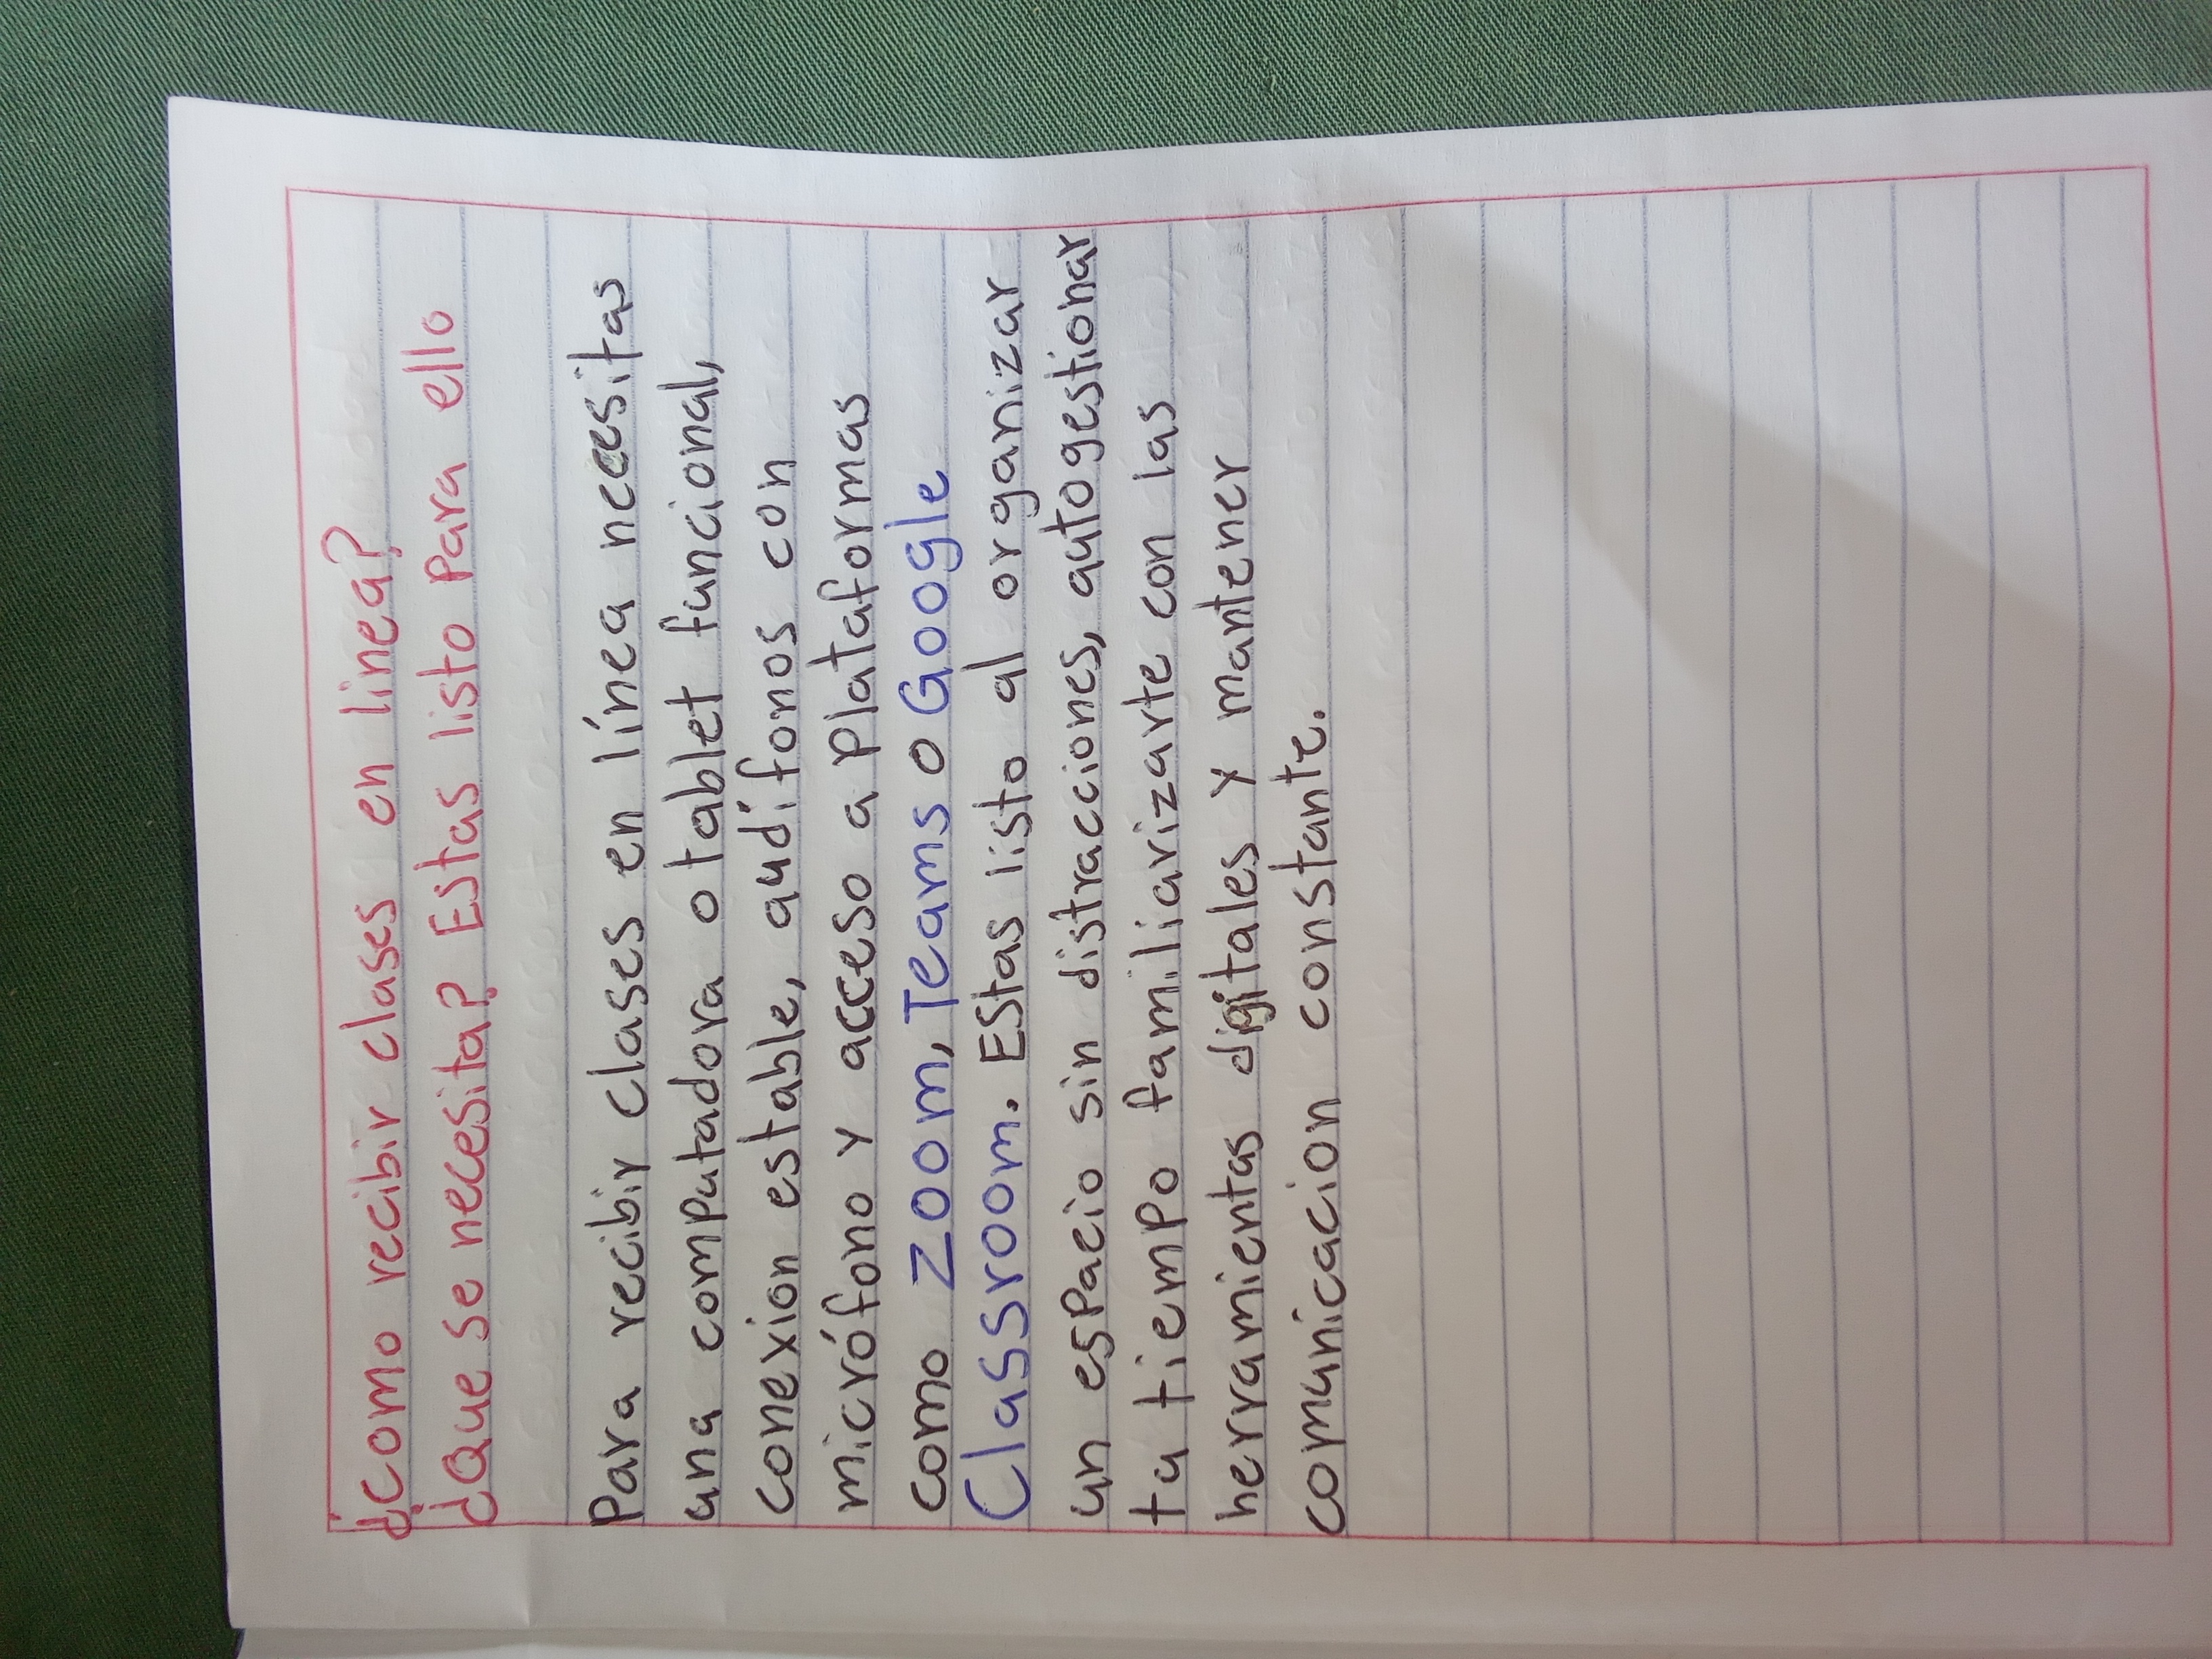 ¿como recibir clases en linea?
¿Que se necesita? Estas listo para ello
Para recibir clases en línea necesitas
una computadora o tablet funcional,
conexion estable, audífonos con
micrófono y acceso a plataformas
como Zoom, Teams o Google
Classroom. Estas listo al organizar
un espacio sin distracciones, autogestionar
tu tiempo familiarizarte con las
herramientas digitales y mantener
comunicacion constante.